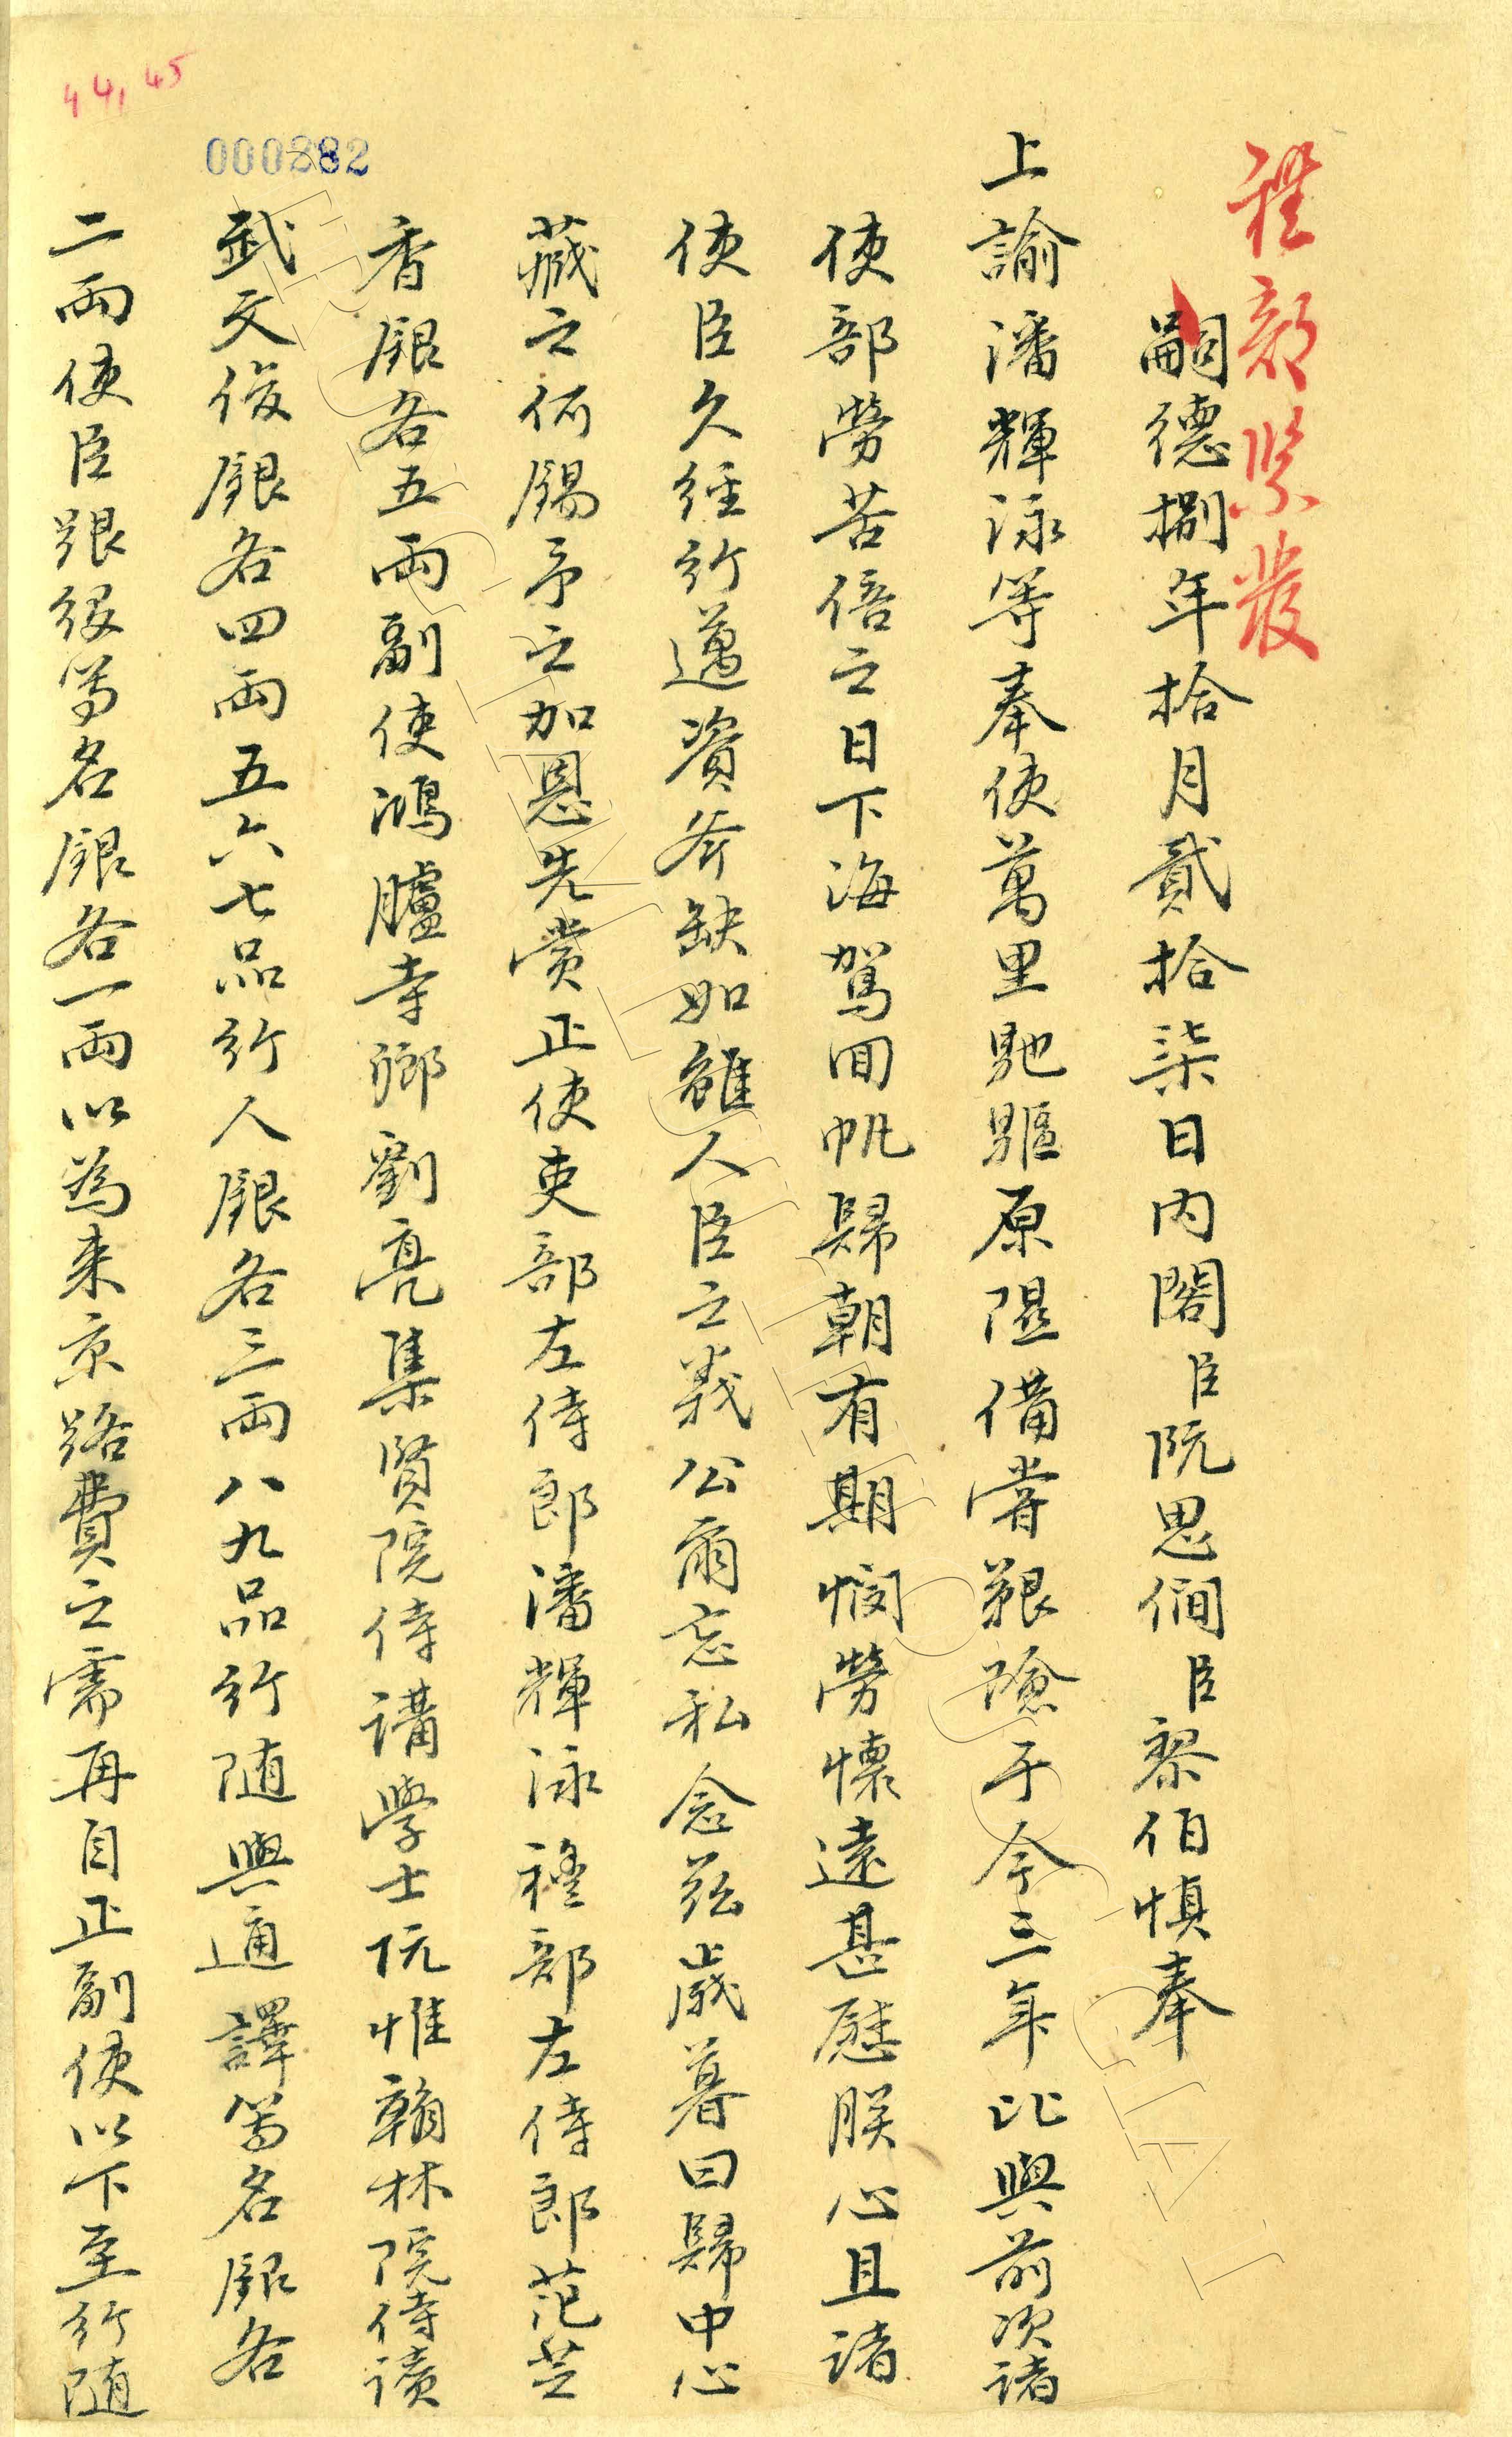 禮部緊發
嗣德捌年拾月貳拾柒日内閣臣阮思僩臣黎伯慎奉
上諭潘輝泳等奉使萬里馳驅原隰備嘗艱險于今三年比與前次諸
使部勞苦倍之日下海駕囬帆歸朝有期憫勞懷遠甚慰朕心且諸
使臣久經行邁資斧缺如雖人臣之義公爾忘私念茲歲暮曰歸中心
藏之何錫予之加恩先賞正使吏部左侍郎潘輝泳禮部左侍郎范芝
香銀各五両副使鴻臚寺卿劉亮集賢院侍講學士阮惟翰林院侍讀
武文俊銀各四両五六七品行人銀各三両八九品行随與通譯等名銀各
二両使臣跟役等名銀各一両以為来京路費之需再自正副使以下至行随
000282
44, 45